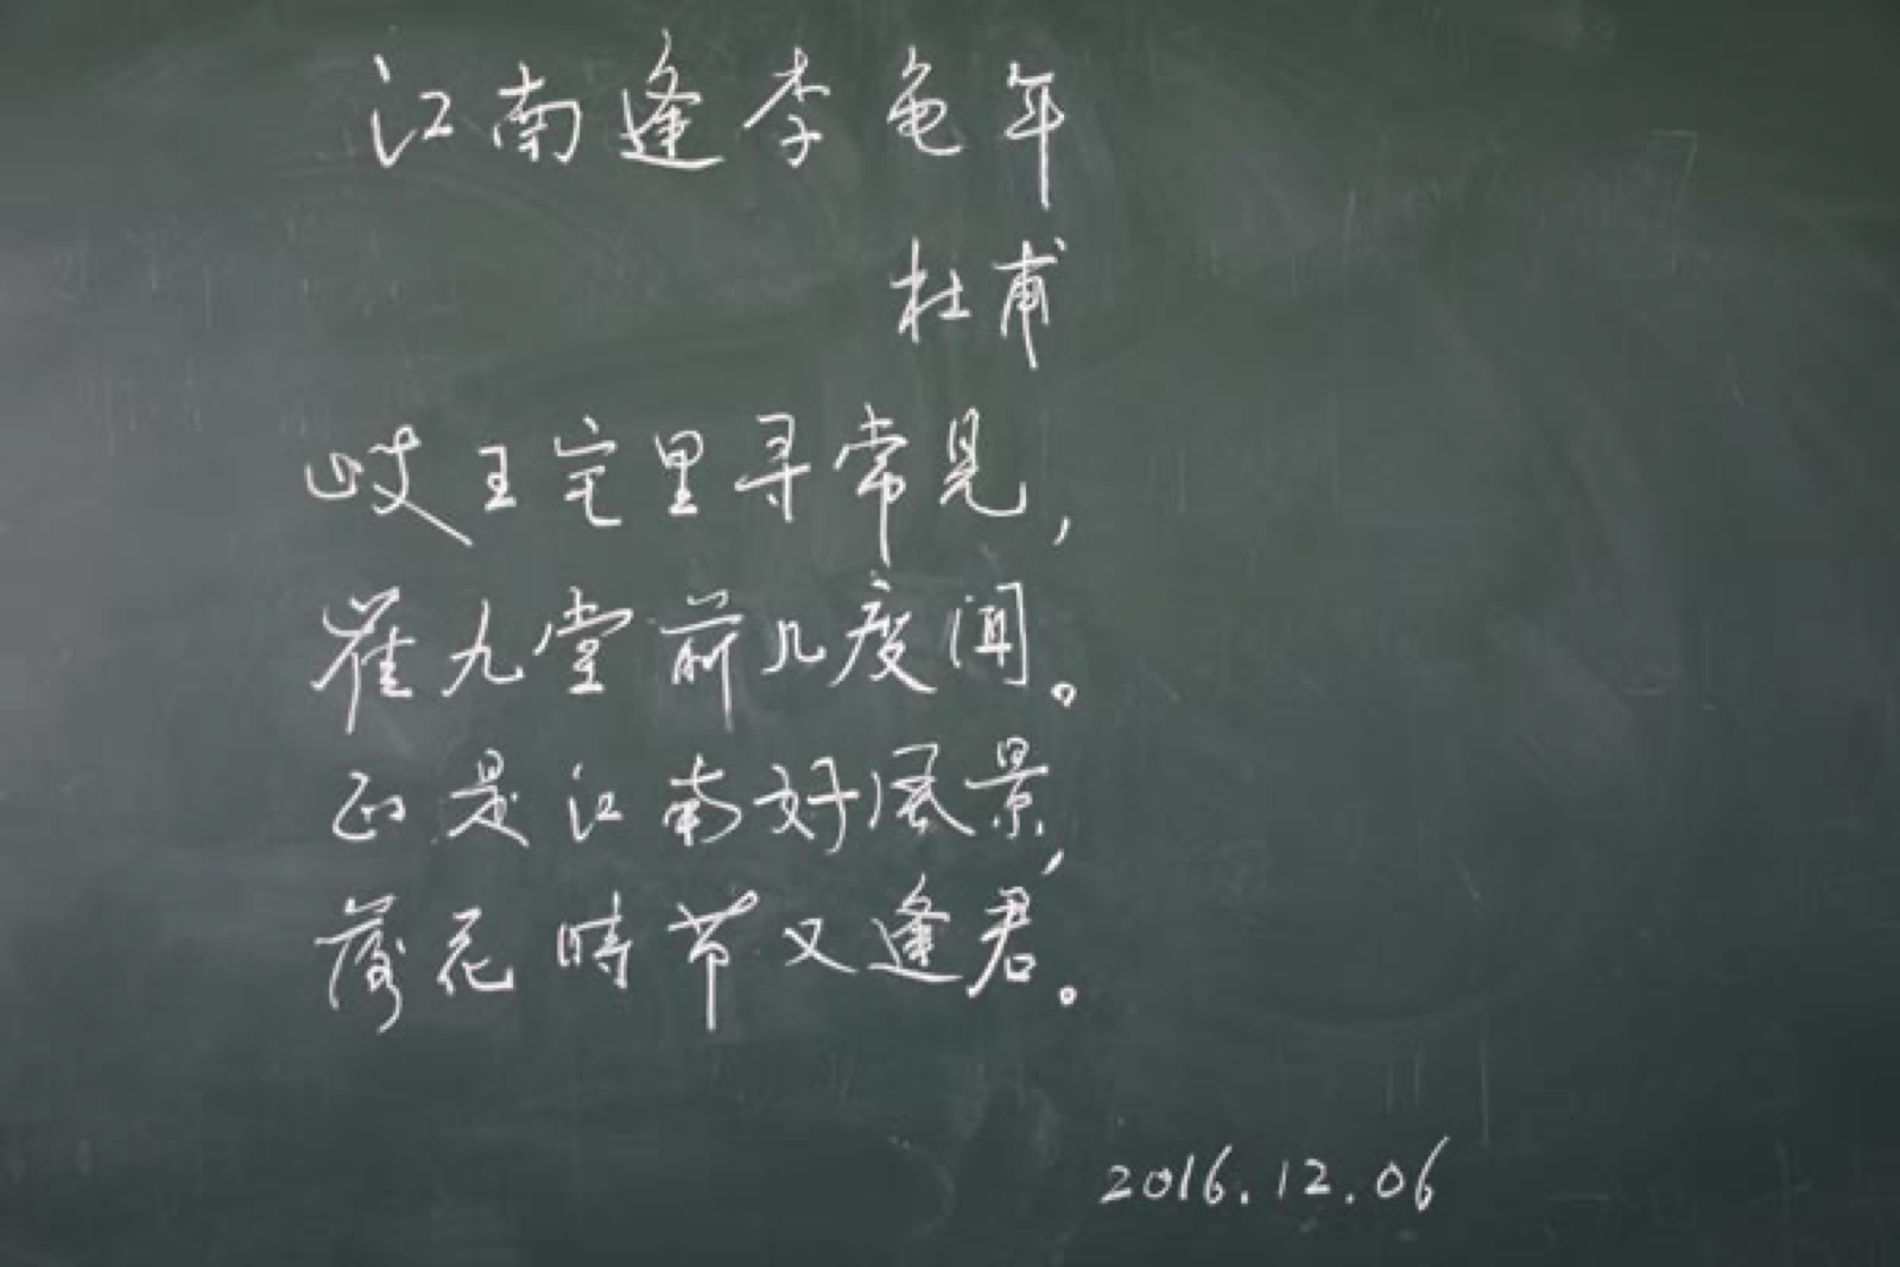 江南逢李龟年
杜甫
岐王宅里寻常见,
崔九堂前几度闻。
正是江南好风景,
落花時节又逢君。
2016.12.06